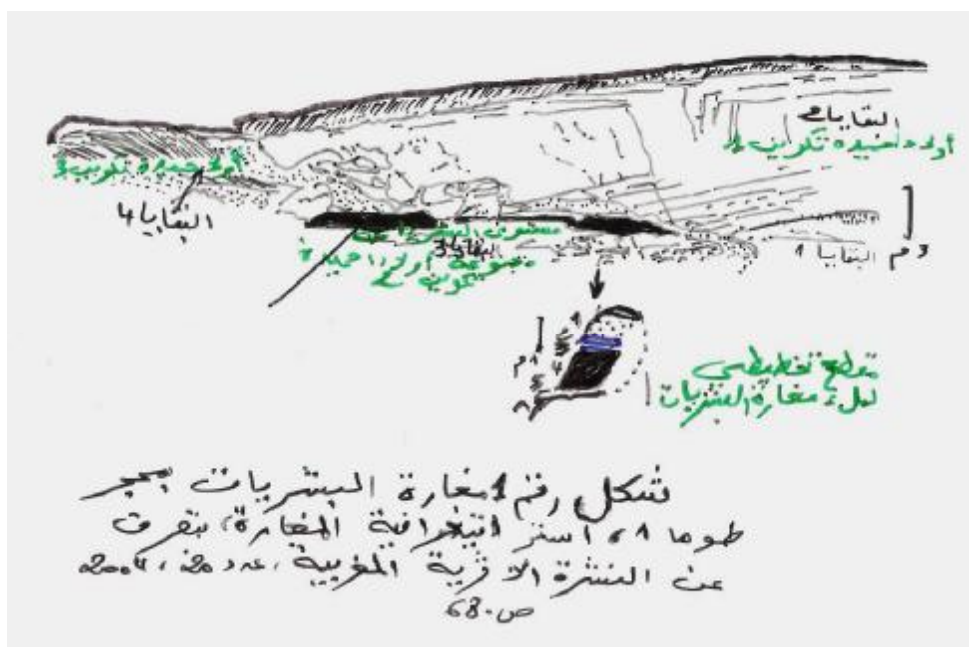 البقايا 2
أولاد احميدة تكوين 4
أولاد حميدة تكوين 3
البقايا 4
مستوى البشريات
البقايا 3
مجموعة أولاد احميدة
تكوين
3 م
البقايا 1
1 م
مقطع تخطيطي
لملء مغارة البشريات
شكل رقم 1 مغارة البشريات بمحجر
طوما 1، استراتيغرافية المغارة، بتصرف
عن النشرة الأثرية المغربية، عدد 20، 2004
ص. 68